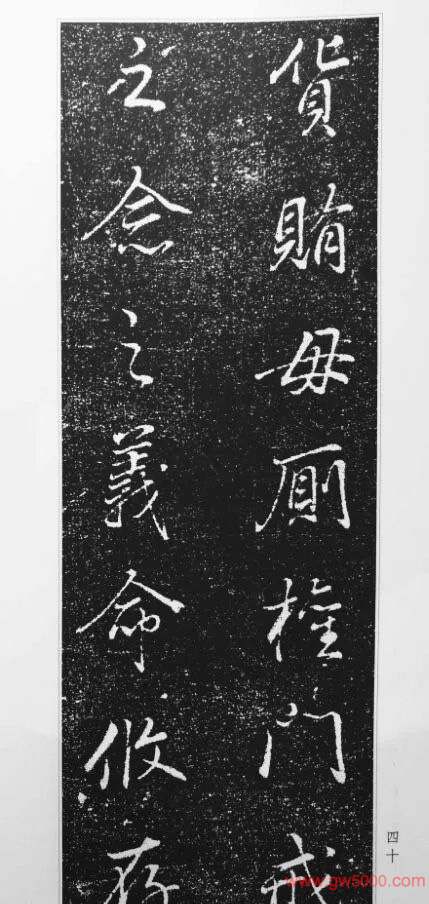 货賄毋厠權門戒
之念之義命攸存
四十
www.gw5000.com